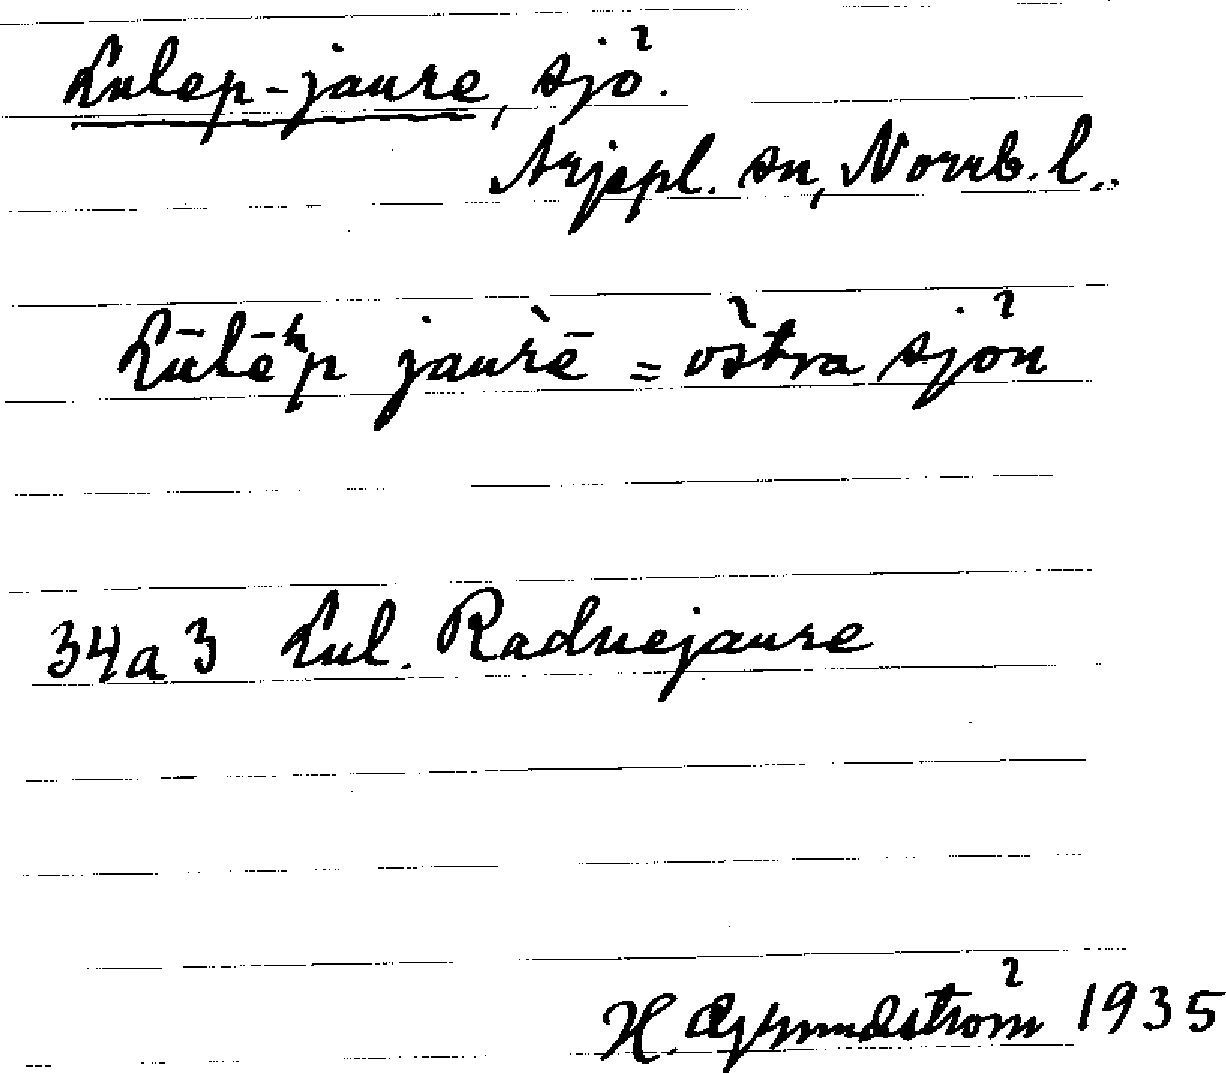 Lulep-jaure, sjö.
Arjepl. sn, Norrb. l.
Lūlēʰp jaùrē = östra sjön
34a3 Lul. Radnejaure
H. Grundström 1935